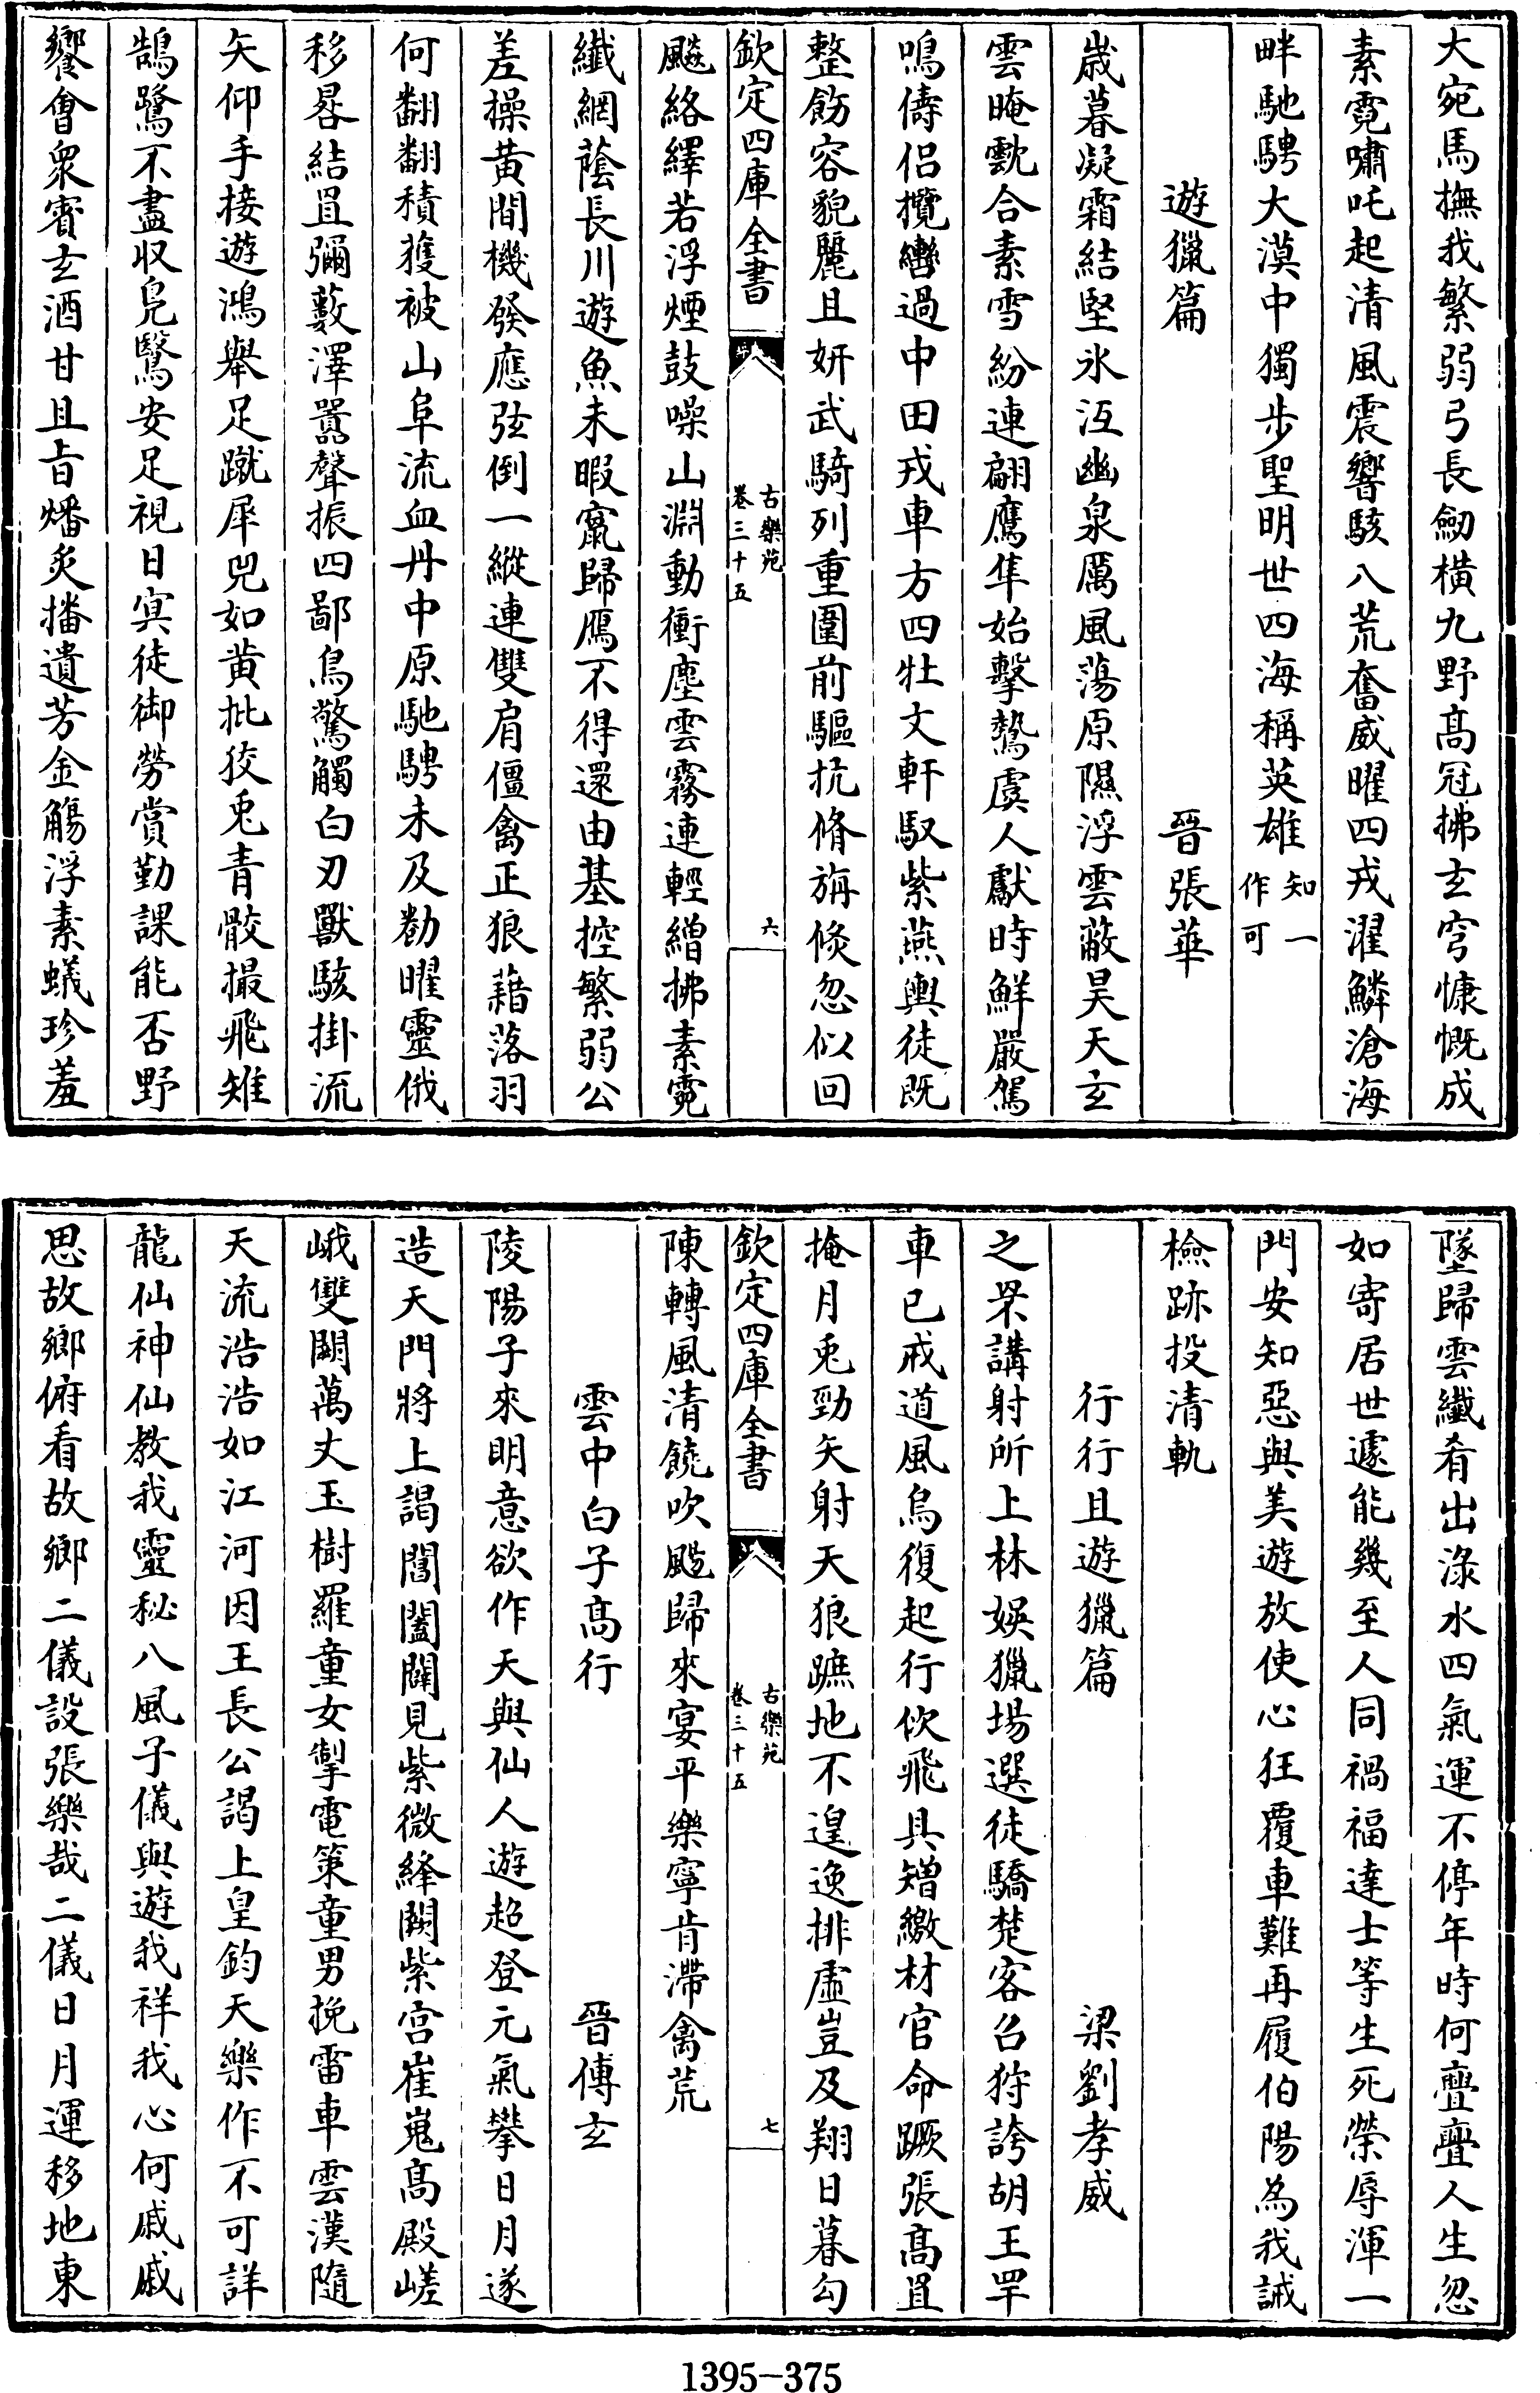 大宛馬撫我繁弱弓長劒横九野髙冠拂玄穹慷慨成
素霓嘯吒起清風震響駭八荒奮威曜四戎濯鱗滄海
畔馳騁大漠中獨步聖明世四海稱英雄知一作可
遊獵篇 晉張華
歲暮凝霜結堅氷沍幽泉厲風蕩原隰浮雲蔽昊天玄
雲晻䨴合素雪紛連翩鷹隼始擊鷙虞人獻時鮮嚴駕
鳴儔侣攬轡過中田戎車方四牡文軒馭紫燕輿徒既
整飭容貌麗且妍武騎列重圍前驅抗脩旃倐忽似回
欽定四庫全書 古樂苑 卷三十五 六
飈絡繹若浮煙鼓噪山淵動衝塵雲霧連輕繒拂素霓
纎網蔭長川遊魚未暇竄歸鴈不得還由基控繁弱公
差操黄間機發應弦倒一縱連雙肩僵禽正狼藉落羽
何翻翻積獲被山阜流血丹中原馳騁未及勌曜靈俄
移晷結罝彌藪澤囂聲振四鄙鳥驚觸白刃獸駭掛流
矢仰手接遊鴻舉足蹴犀兕如黄批狡兎青骹撮飛雉
鵠鷺不盡収鳧鷖安足視日㝠徒御勞賞勤課能否野
饗㑹衆賔玄酒甘且㫖燔炙播遺芳金觴浮素蟻珍羞
墜歸雲纎肴出淥水四氣運不停年時何亹亹人生忽
如寄居世遽能幾至人同禍福達士等生死榮辱渾一
門安知惡與美遊放使心狂覆車難再履伯陽為我誡
檢跡投清軌
行行且遊獵篇 梁劉孝威
之罘講射所上林娛獵場選徒驕楚客召狩誇胡王罕
車已戒道風烏復起行佽飛具矰繳材官命蹶張髙罝
掩月兎勁矢射天狼蹠地不遑逸排虛豈及翔日暮勾
欽定四庫全書 古樂苑 卷三十五 七
陳轉風清饒吹颺歸來宴平樂寧肯滯禽荒
雲中白子髙行 晉傅玄
陵陽子來明意欲作天與仙人遊超登元氣攀日月遂
造天門將上謁閶闔闢見紫微絳闕紫宫崔嵬髙殿嵯
峨雙闕萬丈玉樹羅童女掣電策童男挽雷車雲漢隨
天流浩浩如江河因王長公謁上皇鈞天樂作不可詳
龍仙神仙教我靈秘八風子儀與遊我祥我心何戚戚
思故鄉俯看故鄉二儀設張樂哉二儀日月運移地東
1395-375